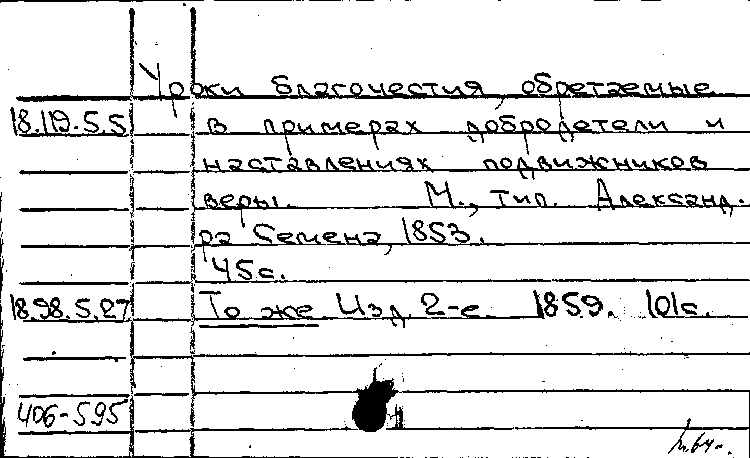 Уроки благочестия, обретаемые
18.119.5.5 в примерах добродетели и
наставлениях подвижников
веры. М., тип. Александ.
ра Семена, 1853.
45с.
18.98.5.27 То же Изд. 2-е. 1859. 101с.
406-595